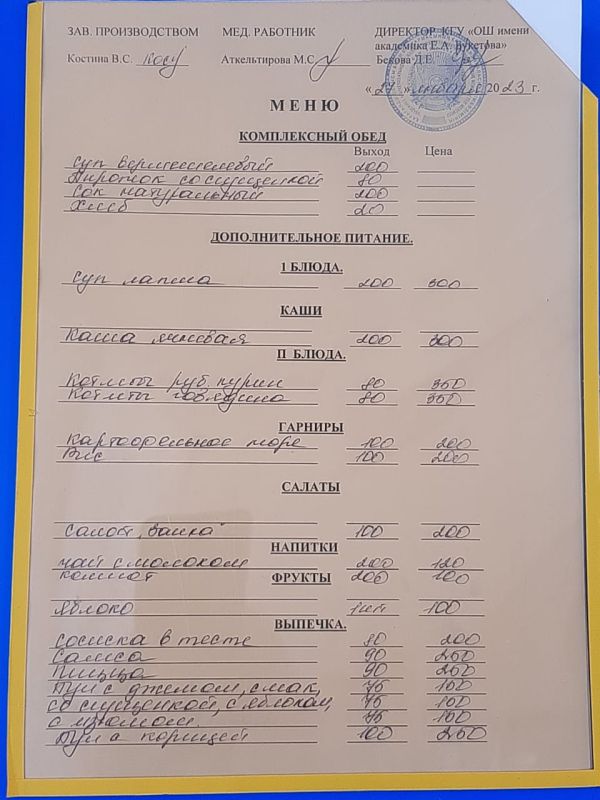 ЗАВ. ПРОИЗВОДСТВОМ МЕД. РАБОТНИК ДИРЕКТОР КГУ «ОШ имени
академика Е.А. Букетова»
Костина В.С. Аткельтирова М.С Бекова Д.Е.
«27» января 2023 г.
МЕНЮ
КОМПЛЕКСНЫЙ ОБЕД
Выход Цена
Суп вермешелевый 200
Пирожок со сгущенкой 80
Сок натуральный 200
Хлеб 20
ДОПОЛНИТЕЛЬНОЕ ПИТАНИЕ.
1 БЛЮДА.
Суп лапша 200 300
КАШИ
Каша 200 300
П БЛЮДА.
Котлеты руб. курин 80 350
Котлеты говядина 80 350
ГАРНИРЫ
Картофельное пюре 100 200
Рис 100 200
САЛАТЫ
Салат 100 200
НАПИТКИ
чай с молоком 200 120
компот 200 100
ФРУКТЫ
яблоко 1шт 100
ВЫПЕЧКА.
Сосиска в тесте 80 200
Самса 90 250
Пицца 90 250
Пуи с джемом, с мак, 75 150
со сгущенкой, с яблоком, 75 150
с изюмом. 75 150
Пуи с корицей 100 250